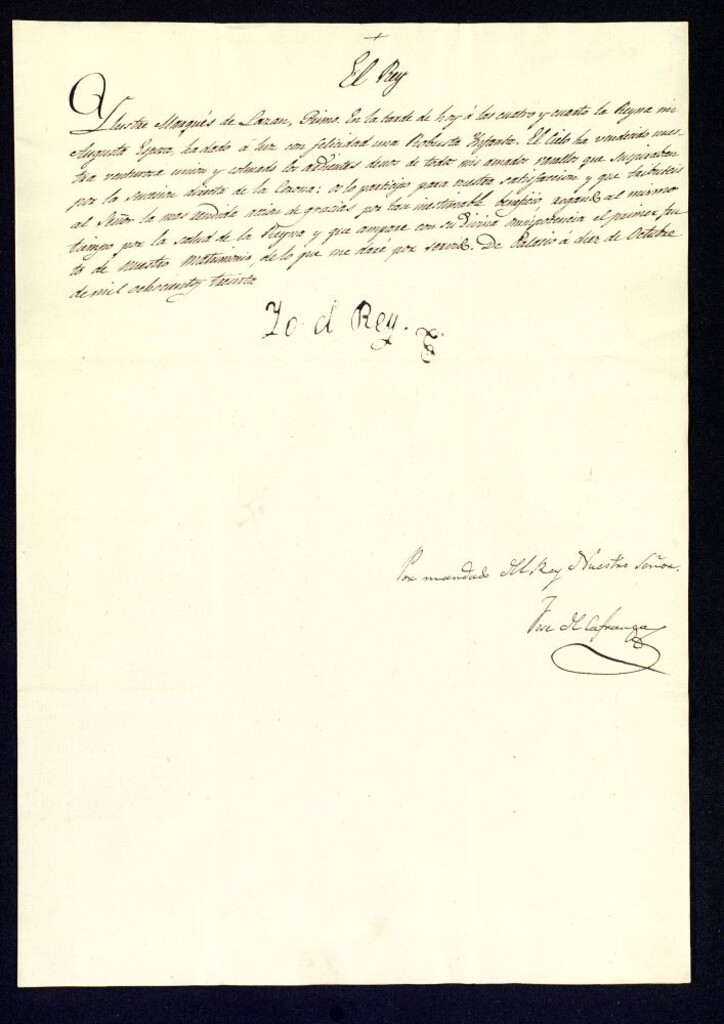 El Rey
Yllustre Marqués de Lazan, Primo. En la tarde de hoy á las cuatro y cuarto la Reyna mi
Augusta Esposa, ha dado á luz con felicidad una Robusta Ynfanta. El Cielo ha bendecido nues-
tra venturosa union y colmado los ardientes deseos de todos mis amados vasallos que suspiraban
por la sucesion directa de la Corona: os lo participo para vuestra satisfaccion y que tributeis
al Señor la mas rendida accion de gracias por tan inestimable beneficio, rogando al mismo
tiempo por la salud de la Reyna y que ampare con su divina omnipotencia el primer fru-
to de Nuestro Matrimonio, de lo que me daré por servido. De Palacio á diez de Octubre
de mil ochocientos treinta
Yo el Rey.
Por mandado del Rey Nuestro Señor.